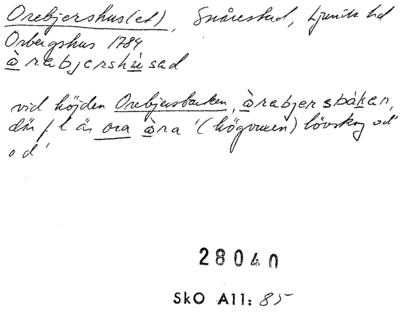 Orebjershus(et), Snårestad, Ljunits hd
Orbergshus 1784
àrabjershúsad
vid höjden Orebjersbacken, àrabjersbákan,
där f l är ora àra '(högvuxen) lövskog od'
od'
28040
SkO All: 85